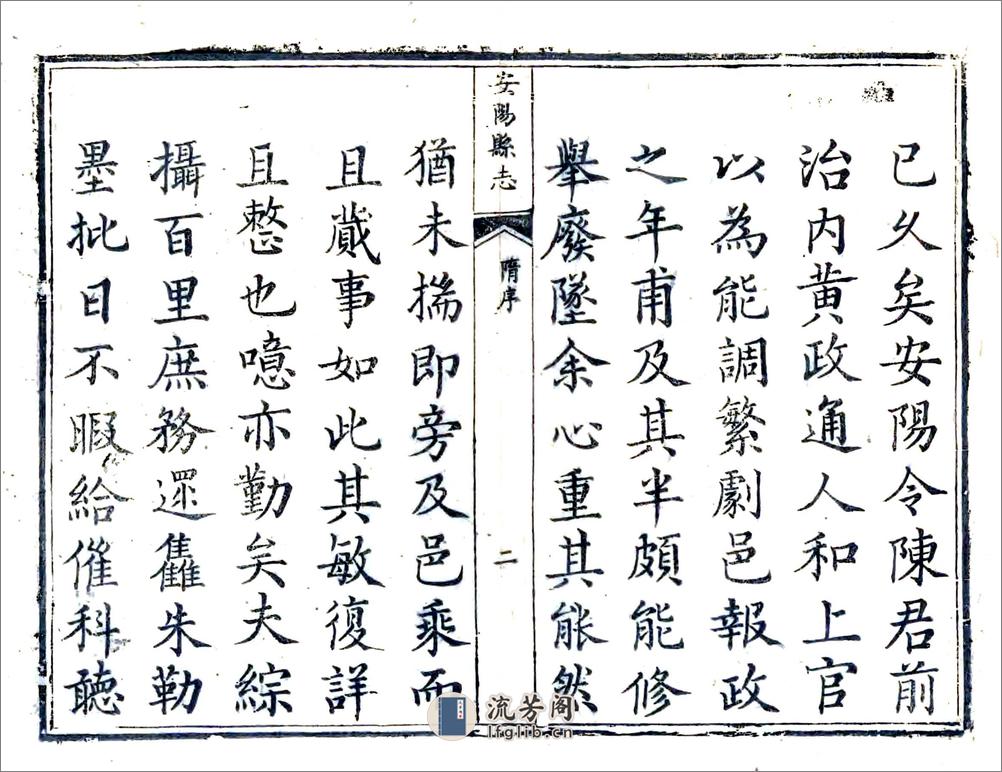 已久矣安陽令陳君前
治内黄政通人和上官
以為能調繁劇邑報政
之年甫及其半頗能修
舉廢墜余心重其能然
安陽縣志
隋序
二
猶未揣即旁及邑乘而
且蕆事如此其敏復詳
且整也噫亦勤矣夫綜
攝百里庶務還讎朱勒
墨批日不暇給催科聽
流芳阁
lfglib.cn